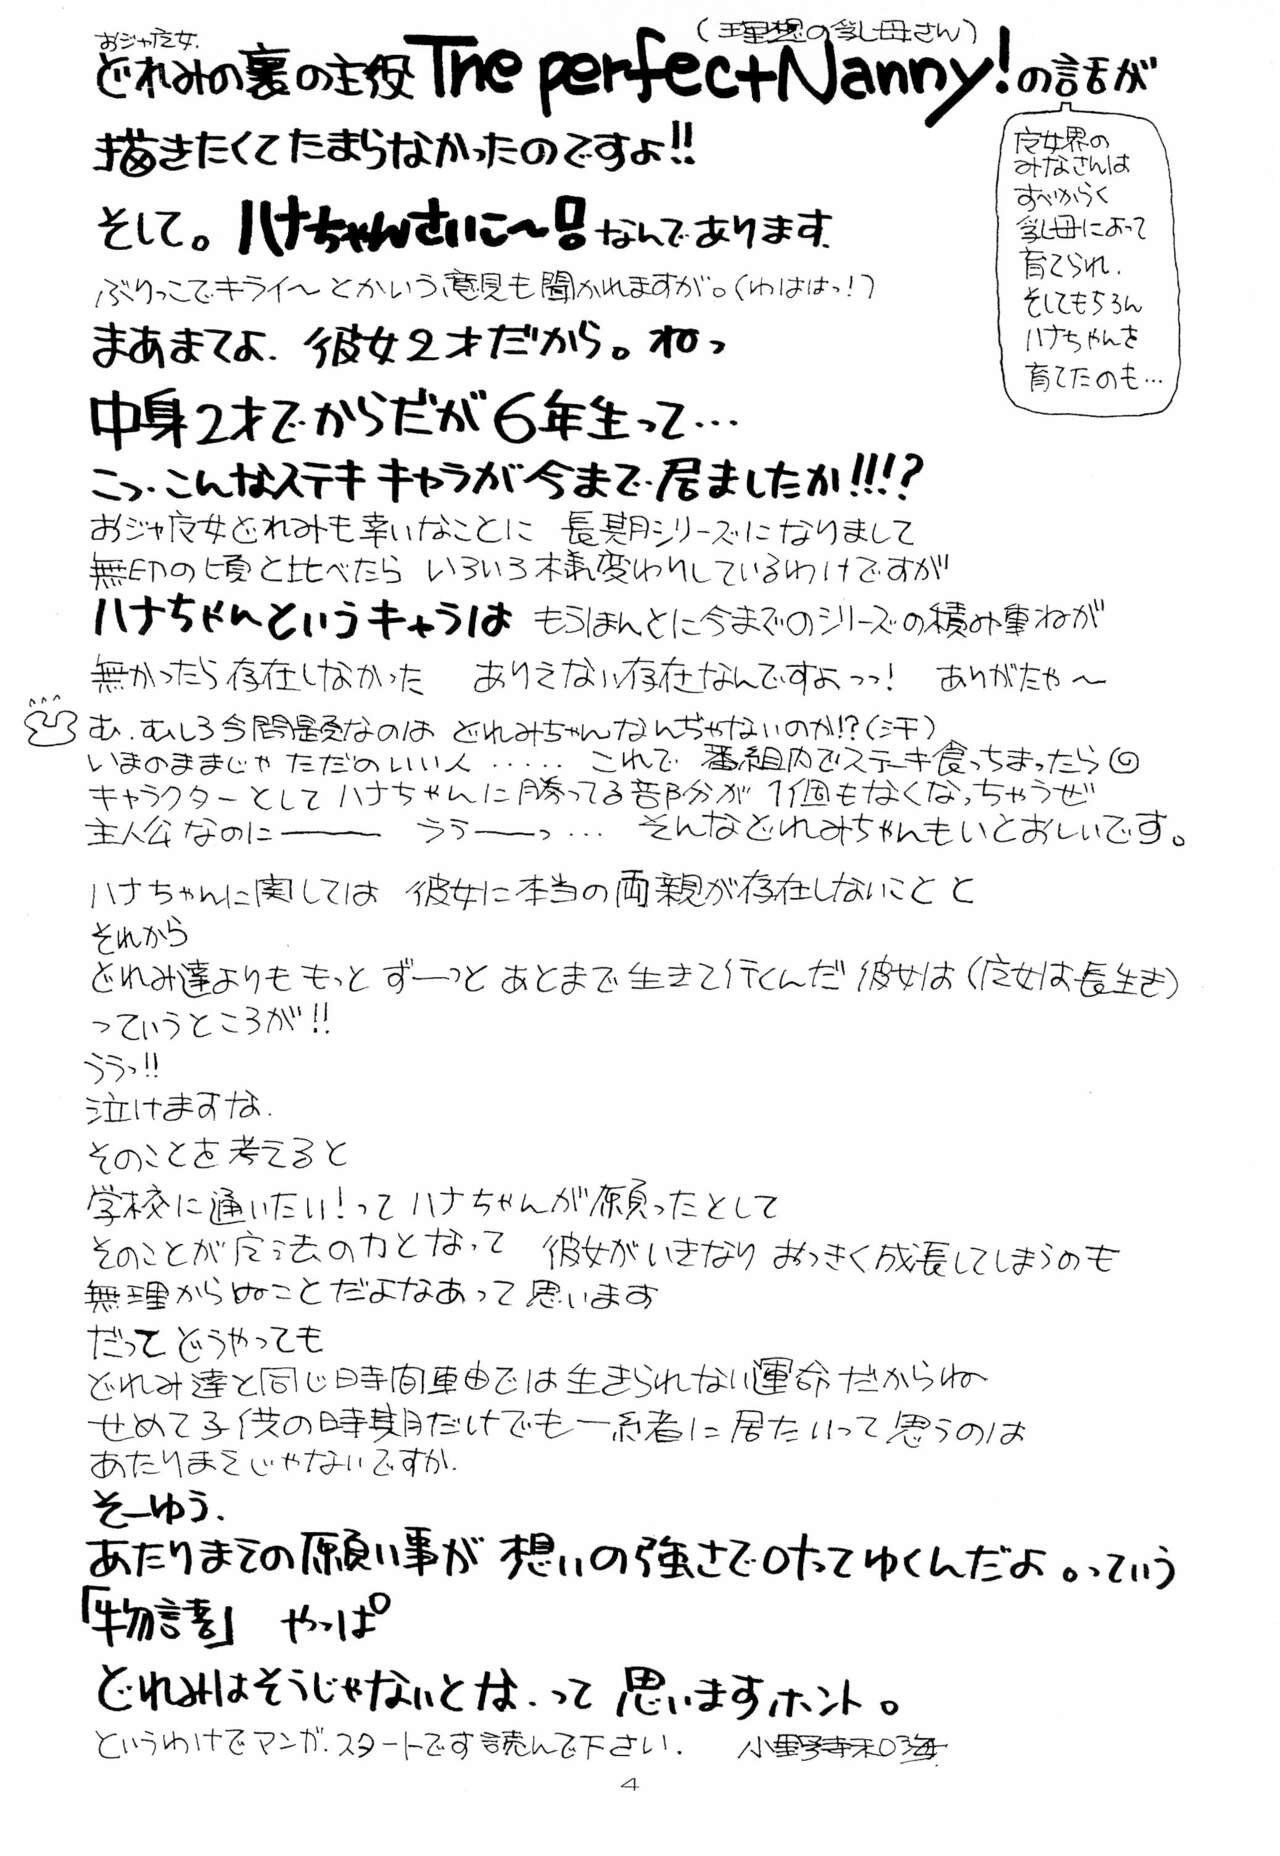 (理想の乳母さん)
おジャ魔女
どれみの裏の主役The perfect Nanny!の話が
描きたくてたまらなかったのですよ!!
魔女界の
みなさんは
すべからく
乳母によって
育てられ.
そしてもちろん
ハナちゃんを
育てたのも…
そして。ハナちゃんさいこ〜!なんであります.
ぶりっこでキライ〜とかいう意見も聞かれますが。(わははっ!)
まあまてよ.彼女2才だから。ねっ
中身2才でからだが6年生って…
こっ.こんなステキキャラが今まで居ましたか!!!?
おジャ魔女どれみも幸いなことに 長期シリーズになりまして
無印の頃と比べたら いろいろ様変わりしているわけですが
ハナちゃんというキャラは もうほんとに今までのシリーズの積み重ねが
無かったら存在しなかった ありえない存在なんですよっっ! ありがたや〜
む.むしろ今問題なのは どれみちゃんなんぢゃないのか!?(汗)
いまのままじゃ ただのいい人 ‥‥‥ これで 番組内でステーキ食っちまったら
キャラクターとしてハナちゃんに勝ってる部分が 1個もなくなっちゃうぜ
主人公なのに――― ううーっ… そんなどれみちゃんもいとおしいです。
ハナちゃんに関しては 彼女に本当の両親が存在しないことと
それから
どれみ達よりも もっと ずーっと あとまで生きて行くんだ 彼女は(魔女は長生き)
っていうところが!!
ううっ!!
泣けますな.
そのことを考えると
学校に通いたい!ってハナちゃんが願ったとして
そのことが魔法の力となって 彼女がいきなり おっきく成長してしまうのも
無理からぬことだよなあって思います
だって どうやっても
どれみ達と同じ時間軸では生きられない運命だからね
せめて子供の時期だけでも一緒に居たいって思うのは
あたりまえじゃないですか.
そーゆう.
あたりまえの願い事が 想いの強さで叶ってゆくんだよ。っていう
「物語」 やっぱ
どれみはそうじゃないとな.って 思いますホント。
というわけでマンガ.スタートです読んで下さい. 小野寺禾口海
4